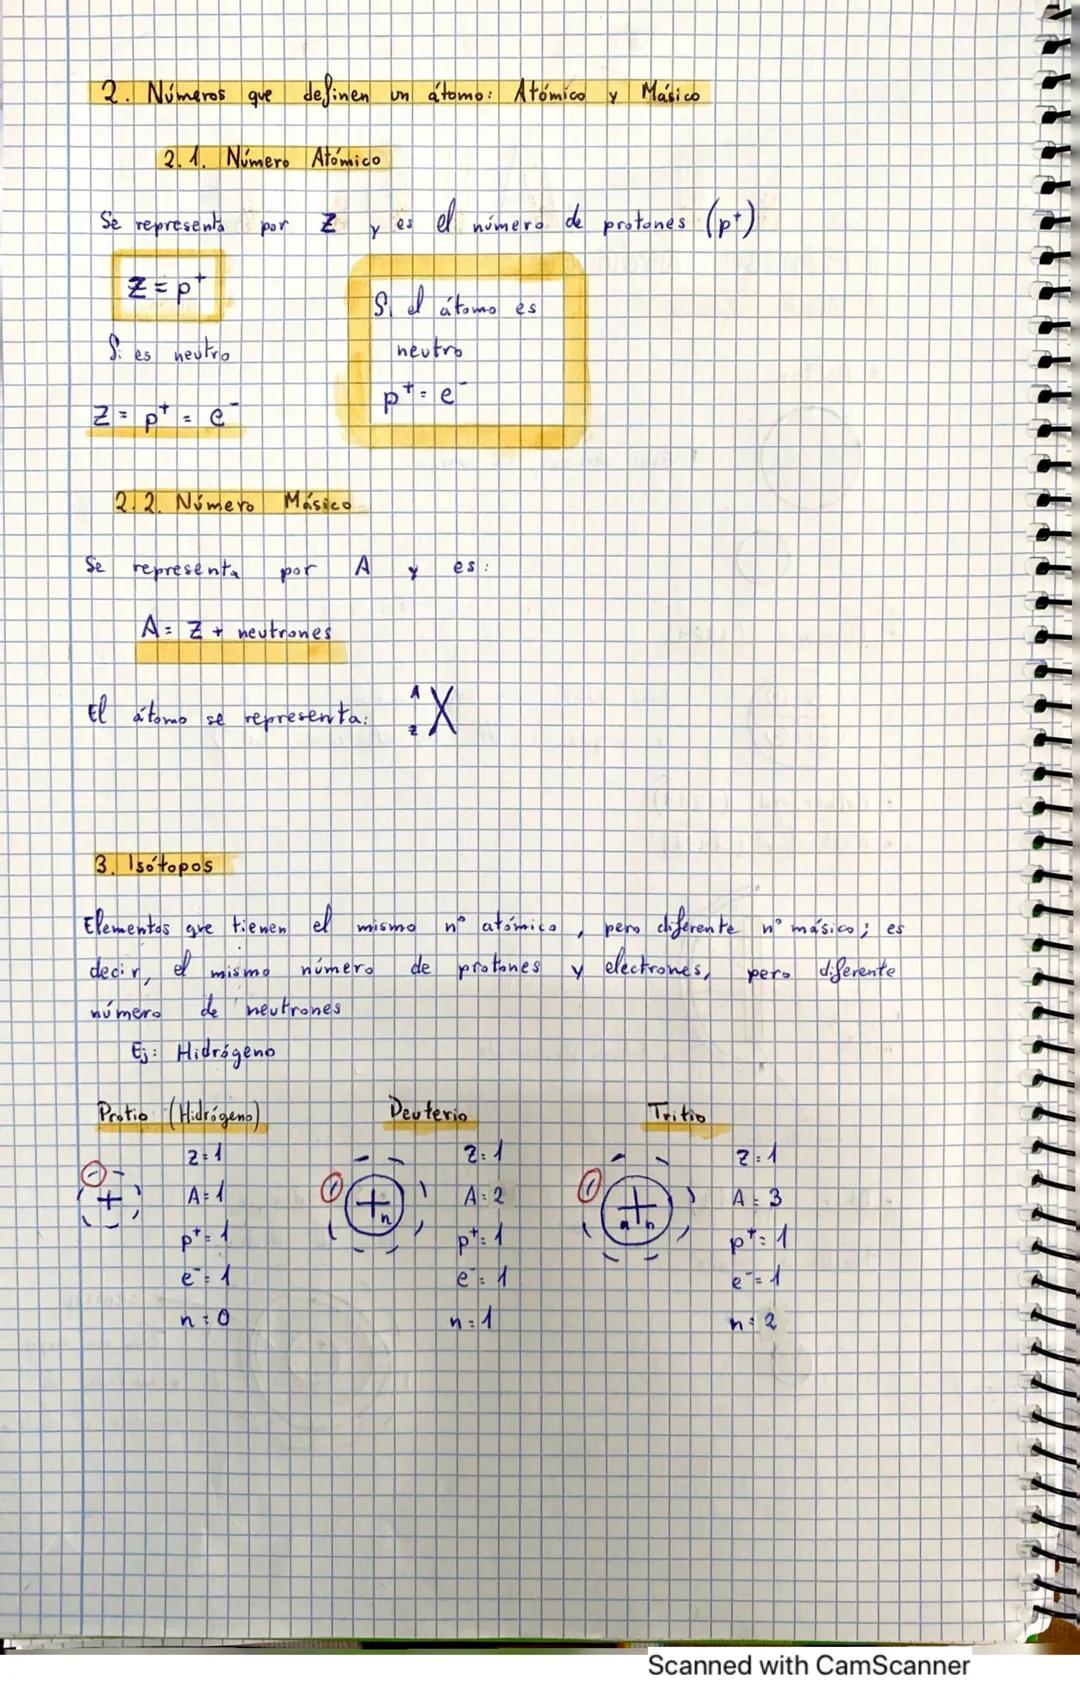 2. Números que definen un átomo: Atómico y Másico
2.1. Número Atómico
Se representa por Z y es el número de protones (p⁺)
Z = p⁺
Si es neutro
Z = p⁺ = e⁻
Si el átomo es
neutro
p⁺ = e⁻
2.2. Número Másico
Se representa por A y es:
A = Z + neutrones
El átomo se representa: ᴬ_Z X
3. Isótopos
Elementos que tienen el mismo nº atómico, pero diferente nº másico; es
decir, el mismo número de protones y electrones, pero diferente
número de neutrones
Ej: Hidrógeno
Protio (Hidrógeno)
Z = 1
A = 1
p⁺ = 1
e⁻ = 1
n = 0
- +
Deuterio
Z = 1
A = 2
p⁺ = 1
e⁻ = 1
n = 1
- + n
Tritio
Z = 1
A = 3
p⁺ = 1
e⁻ = 1
n = 2
- + n n
Scanned with CamScanner